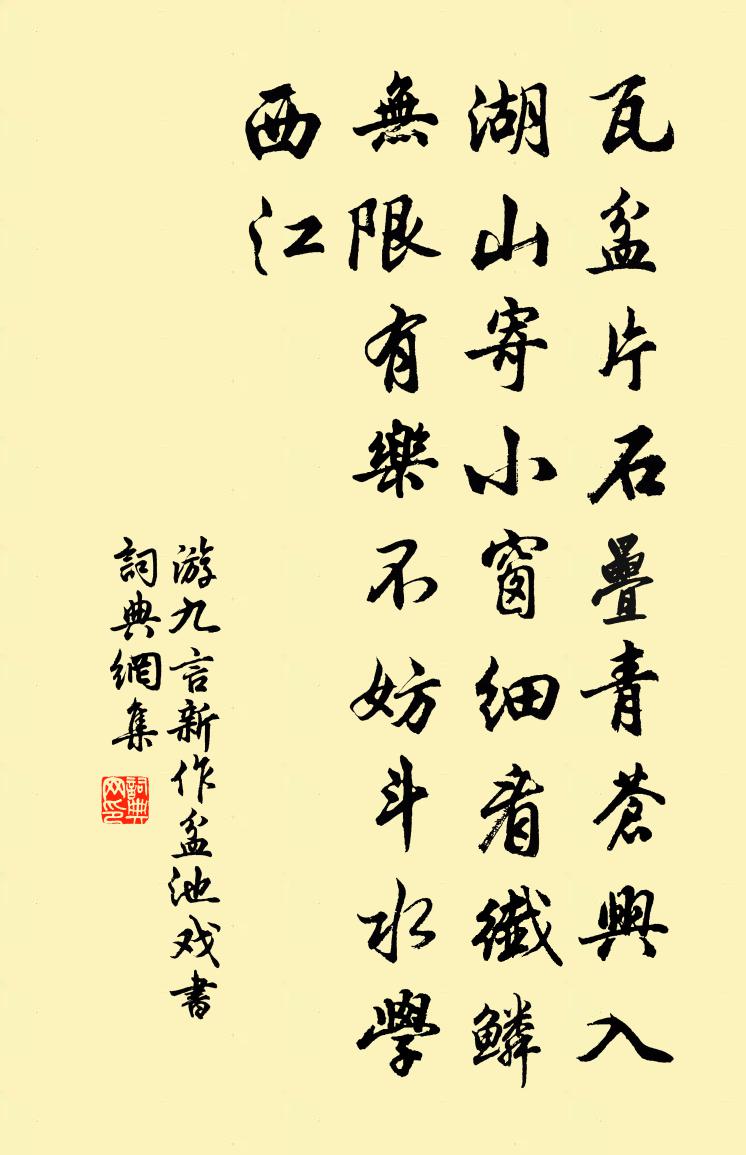 瓦盆片石疊青蒼興入
湖山寄小窗細看纖鱗
無限有樂不妨斗水學
西江
游九言新作盆池戏書
詞典網集
詞典网印